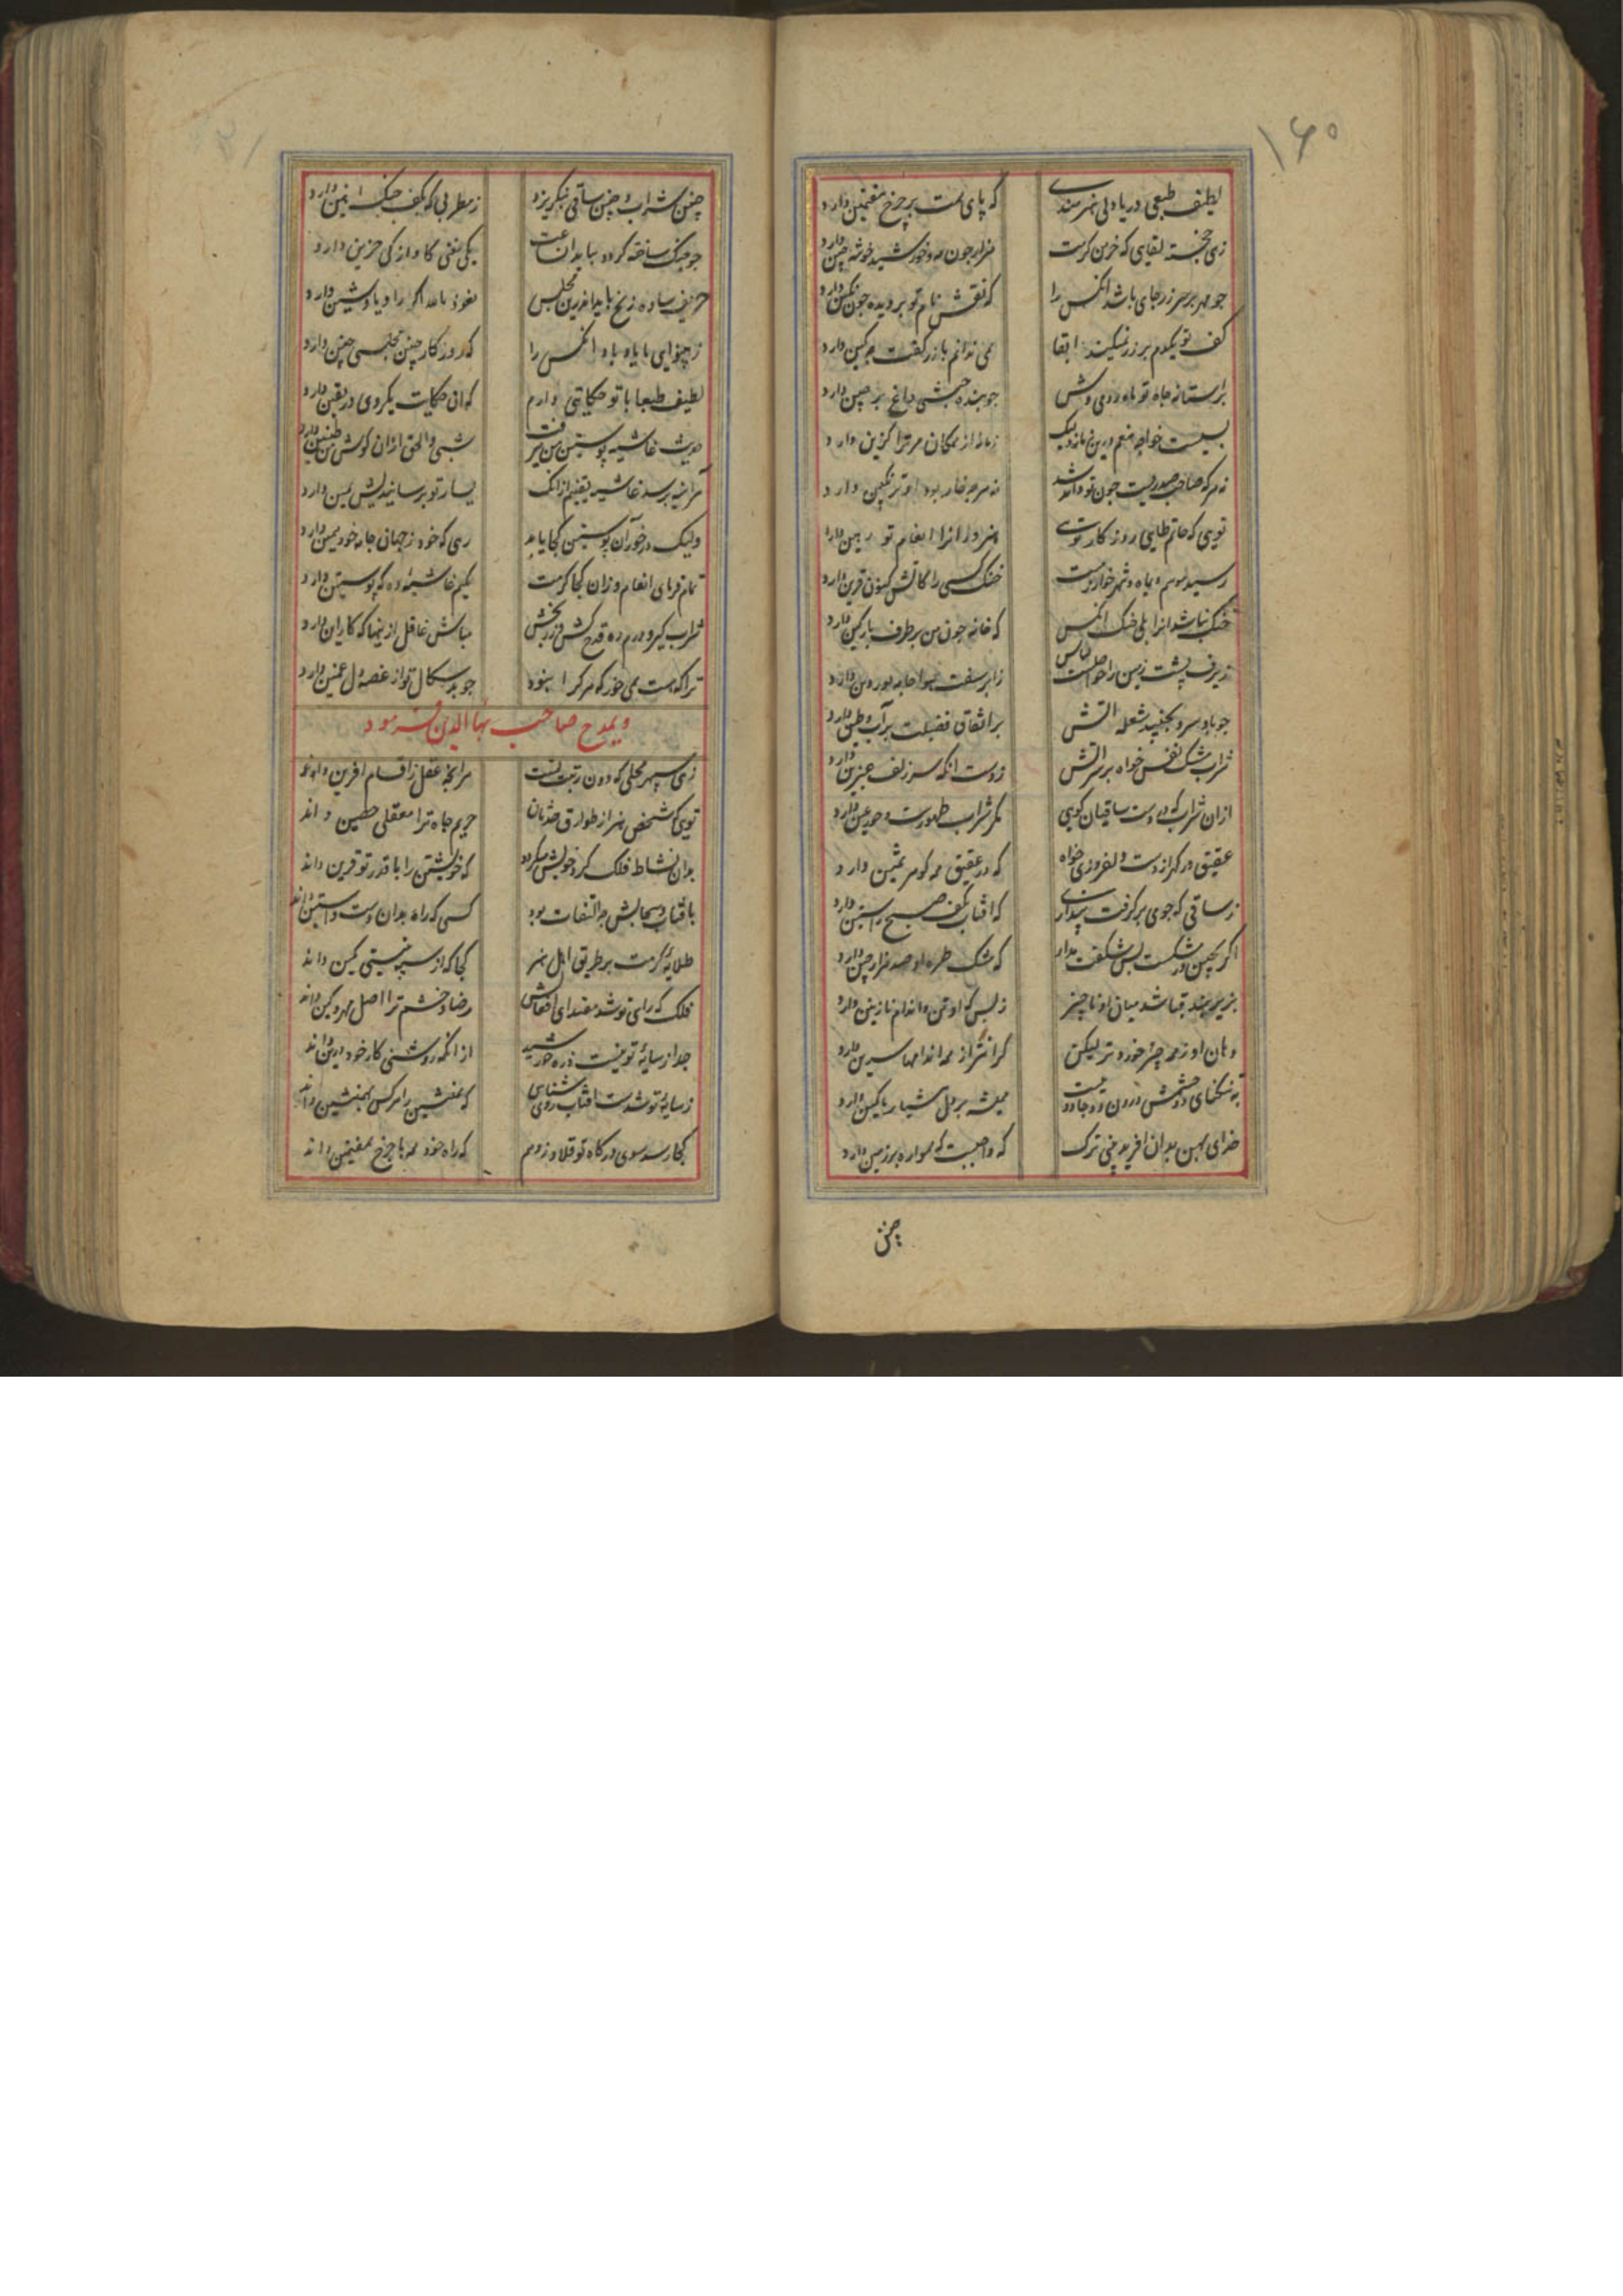 ۱۶۰
لطیف طبعی دریا دلی هنرمندی که پای همت بر چرخ هفتمین دارد
زهی خجسته لقایی که خرمن کرمت هزار چون مه و خورشید خوشه چین دارد
چو مهر بر سر زر جای باشد انکس را که نقش نام تو بر دیده چون نکین دارد
کف تو یکدم بر زر نمیکند ابقا نمی ندانم با زر کفت چه کین دارد
بر استانه جاه تو ماه روی وش چو بنده حبشی داغ بر جبین دارد
بسیست خواجه منعم درین زمانه ولیک زمانه از همکان مر ترا کزین دارد
نه هر که صاحب صدریست چون تو داند شد نه هر چه خار بود او ترنکبین دارد
تویی که حاتم طایی روزکار تویی هنروران را انعام تو رهین دارد
رسید موسم دیماه و شهر خوارزمست خنک کسی را کاتش کنون قرین دارد
خنک نباشد انرا بلی خنک انکس که خانه چون من بر طرف پارکین دارد
ز برف پشت زمین را حواصلست لباس ز ابر سفت هوا جامه بوردین دارد
چو باد سرد بجنبید شعله اتش بر اتفاق فضیلت بر آب و طین دارد
شراب مشک نفس خواه بر سر اتش ز دست انکه سر زلف عنبرین دارد
ازان شراب که در دست ساقیان کویی مکر شراب طهورست و حور عین دارد
عقیق در کهر از دست دلفروزی خواه که در عقیق همه کوهر ثمین دارد
ز ساقی که چو می بر کرفت پنداری که افتاب بکف صبح راستین دارد
اکر بچین در مشکست بس شکفت مدار که مشک طره او صد هزار چین دارد
بزیر بند قبا شد میان او ناچیز ز بس که او تن و اندام نازنین دارد
دهان او ز همه چیز خردتر لیکن کرانتر از همه اندامها سرین دارد
به تنکنای دو چشمش درون دو جادو نیست همیشه بر دل هشیار ما کمین دارد
خدای بهمن بدان افرید پنی ترک که واجبست که همواره بر زمین دارد
چنین
چنین شراب و چنین ساقی نبکریزد ز مطربی که بکف چنک رامتین دارد
چو چنک ساخته کردد بباید آن ساعت یکی مغنی کاوازکی حزین دارد
حریف ساده زنخ باید اندرین مجلس نعوذ بالله اکر راد یا دشین دارد
ز بینوایی ما یاد باد انکس را که روزکار چنین مجلسی چنین دارد
لطیف طبعا با تو حکایتی دارم که ان حکایت یکروی در یقین دارد
حدیث غاشیه پوستین من میرفت شبی و الحق ازان کوش من طنین دارد
هر آینه برسد غاشیه یقینم ازانک یسار تو برسانیدنش یمین دارد
ولیک درخور آن پوستین کجا یابد رهی که خود ز جهانی جامه خود همین دارد
تمام فرمای انعام و زان کجا کرمست بکیم غاشیه ده که پوستین دارد
شراب کیر و درم ده قدح کش و زر بخش مباش غافل ازینها که کار این دارد
ترا که هست همی خور که هر کرا نبود چو بدسکال تو از غصه دل غمین دارد
و یمدح صاحب بهاالدین فرمود
زهی سپهر محلی که دون رتبت تست هر انچه عقل ز اقسام افرین داند
تویی که شخص هنر از طوارق حدثان حریم جاه ترا معقلی حصین داند
بدان نشاط فلک کرد خویش میکردد که خویشتن را با قدر تو قرین داند
بافتاب و سحابش چه التفات بود کسی که راه بدان دست و استین داند
طلایه کرمت بر طریق اهل هنر کجا که از سپه نیستی کمین داند
فلک که رای تو شد مقتدای افعالش رضا و خشم ترا اصل مهر و کین داند
جدا ز سایه تو نیست ذره خورشید از انکه روشنی کار خود درین داند
ز سایه تو شدست افتاب روی شناس که همنشین را هر کس بهمنشین داند
کجا رسد سوی درکاه تو قلاوز وهم که راه خود همه تا چرخ هفتمین داند